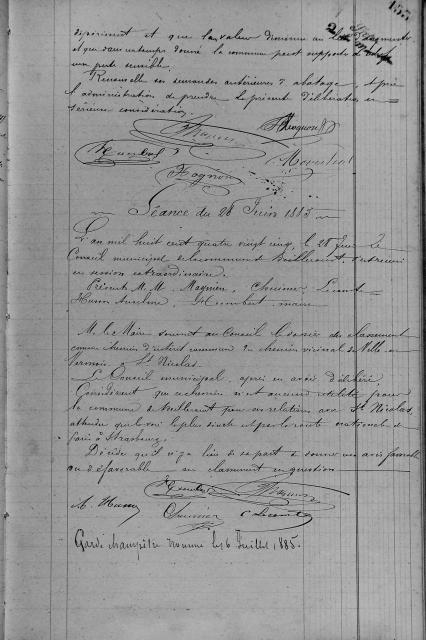 dépérissent et que la valeur diminue
et que dans un temps donné la commune peut supporter
une perte sensible.
Renouvelle ses demandes antérieures d'abatage, et prie
l'administration de prendre le présent délibération en
sérieuse considération.
Humbert
Magnien
Séance du 28 Juin 1885
L'an mil huit cent quatre vingt cinq, le 28 Juin le
Conseil municipal de la commune s'est réuni
en session extraordinaire.
Présents M. M. Magnien, Lecomte
Husson Humbert, maire
M. le Maire soumet au Conseil le dossier de classement
comme chemin d'intérêt commun du chemin vicinal de Ville en
Vermois à St Nicolas.
Le Conseil municipal, après en avoir délibéré
Considérant que ce chemin n'est d'aucune utilité pour
la commune pour ses relations avec St Nicolas,
attendu que la voie la plus directe est par la route nationale de
Paris à Strasbourg.
Décide qu'il n'y a lieu de sa part de donner un avis favorable
ou défavorable au classement en question
Humbert Magnien
Lecomte
Garde champêtre nommé le 6 Juillet 1885.